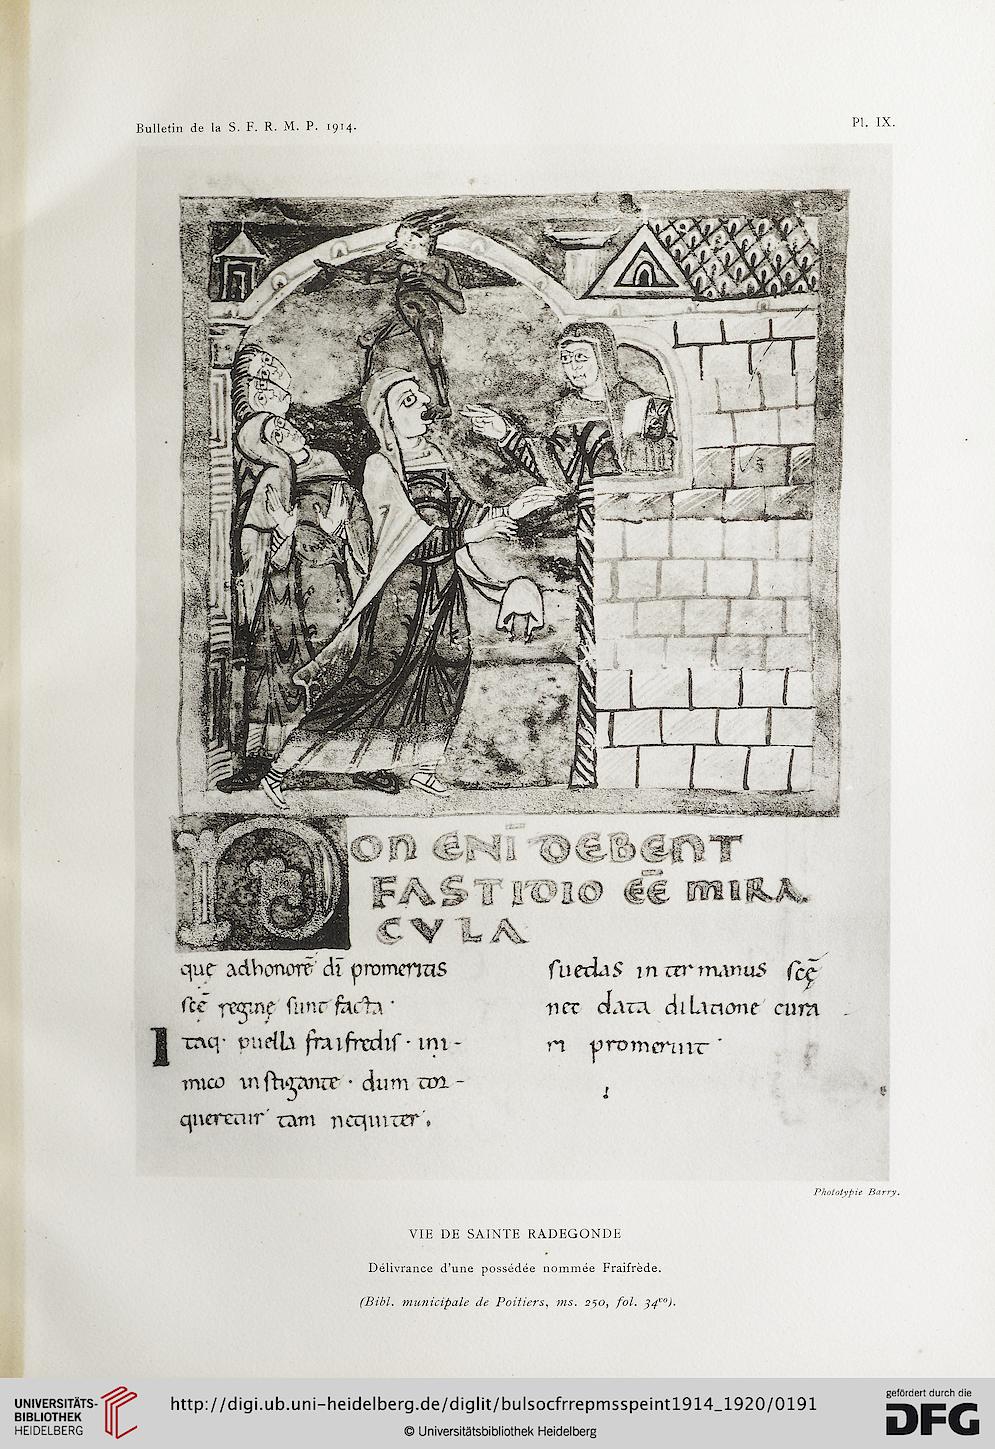 Bulletin de la S. F. R. M. P. 1914.
Pl. IX.
NON ENĪ DEBENT
FASTIDIO EĒ MIRA
CULA
quę adhonorē dī promeritis
scę̄ regine sunt facta ·
Itaq· puella fraifredis · ini-
mico instigante · dum tor-
queretur tam nequiter .
suedas in ter manus scę̄
nec data dilatione cura
ri promeruit ·
Phototypie Barry.
VIE DE SAINTE RADEGONDE
Délivrance d'une possédée nommée Fraifrède.
(Bibl. municipale de Poitiers, ms. 250, fol. 34vo).
UNIVERSITÄTS-
BIBLIOTHEK
HEIDELBERG
http://digi.ub.uni-heidelberg.de/diglit/bulsocfrrepmsspeint1914_1920/0191
© Universitätsbibliothek Heidelberg
gefördert durch die
DFG